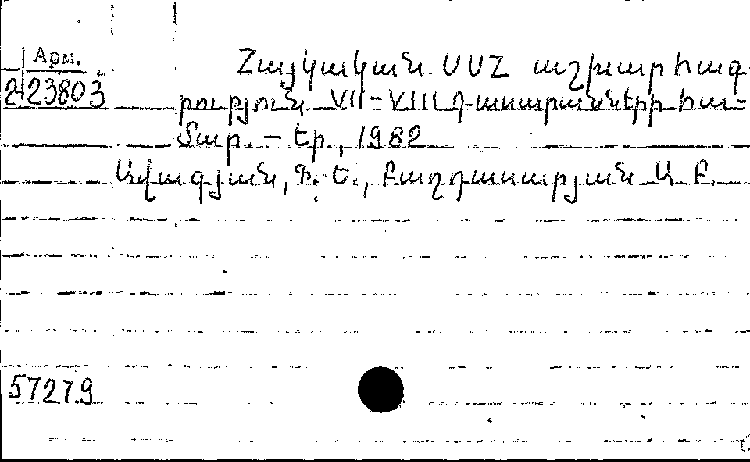 Арм.
2
23803
Հայկական ՍՍՀ աշխարհագ-
րություն VII-VIII դասարանների հա-
մար. – Եր., 1982
Ավագյան, Գ. Ե., Բաղդասարյան Ա. Բ.
57279